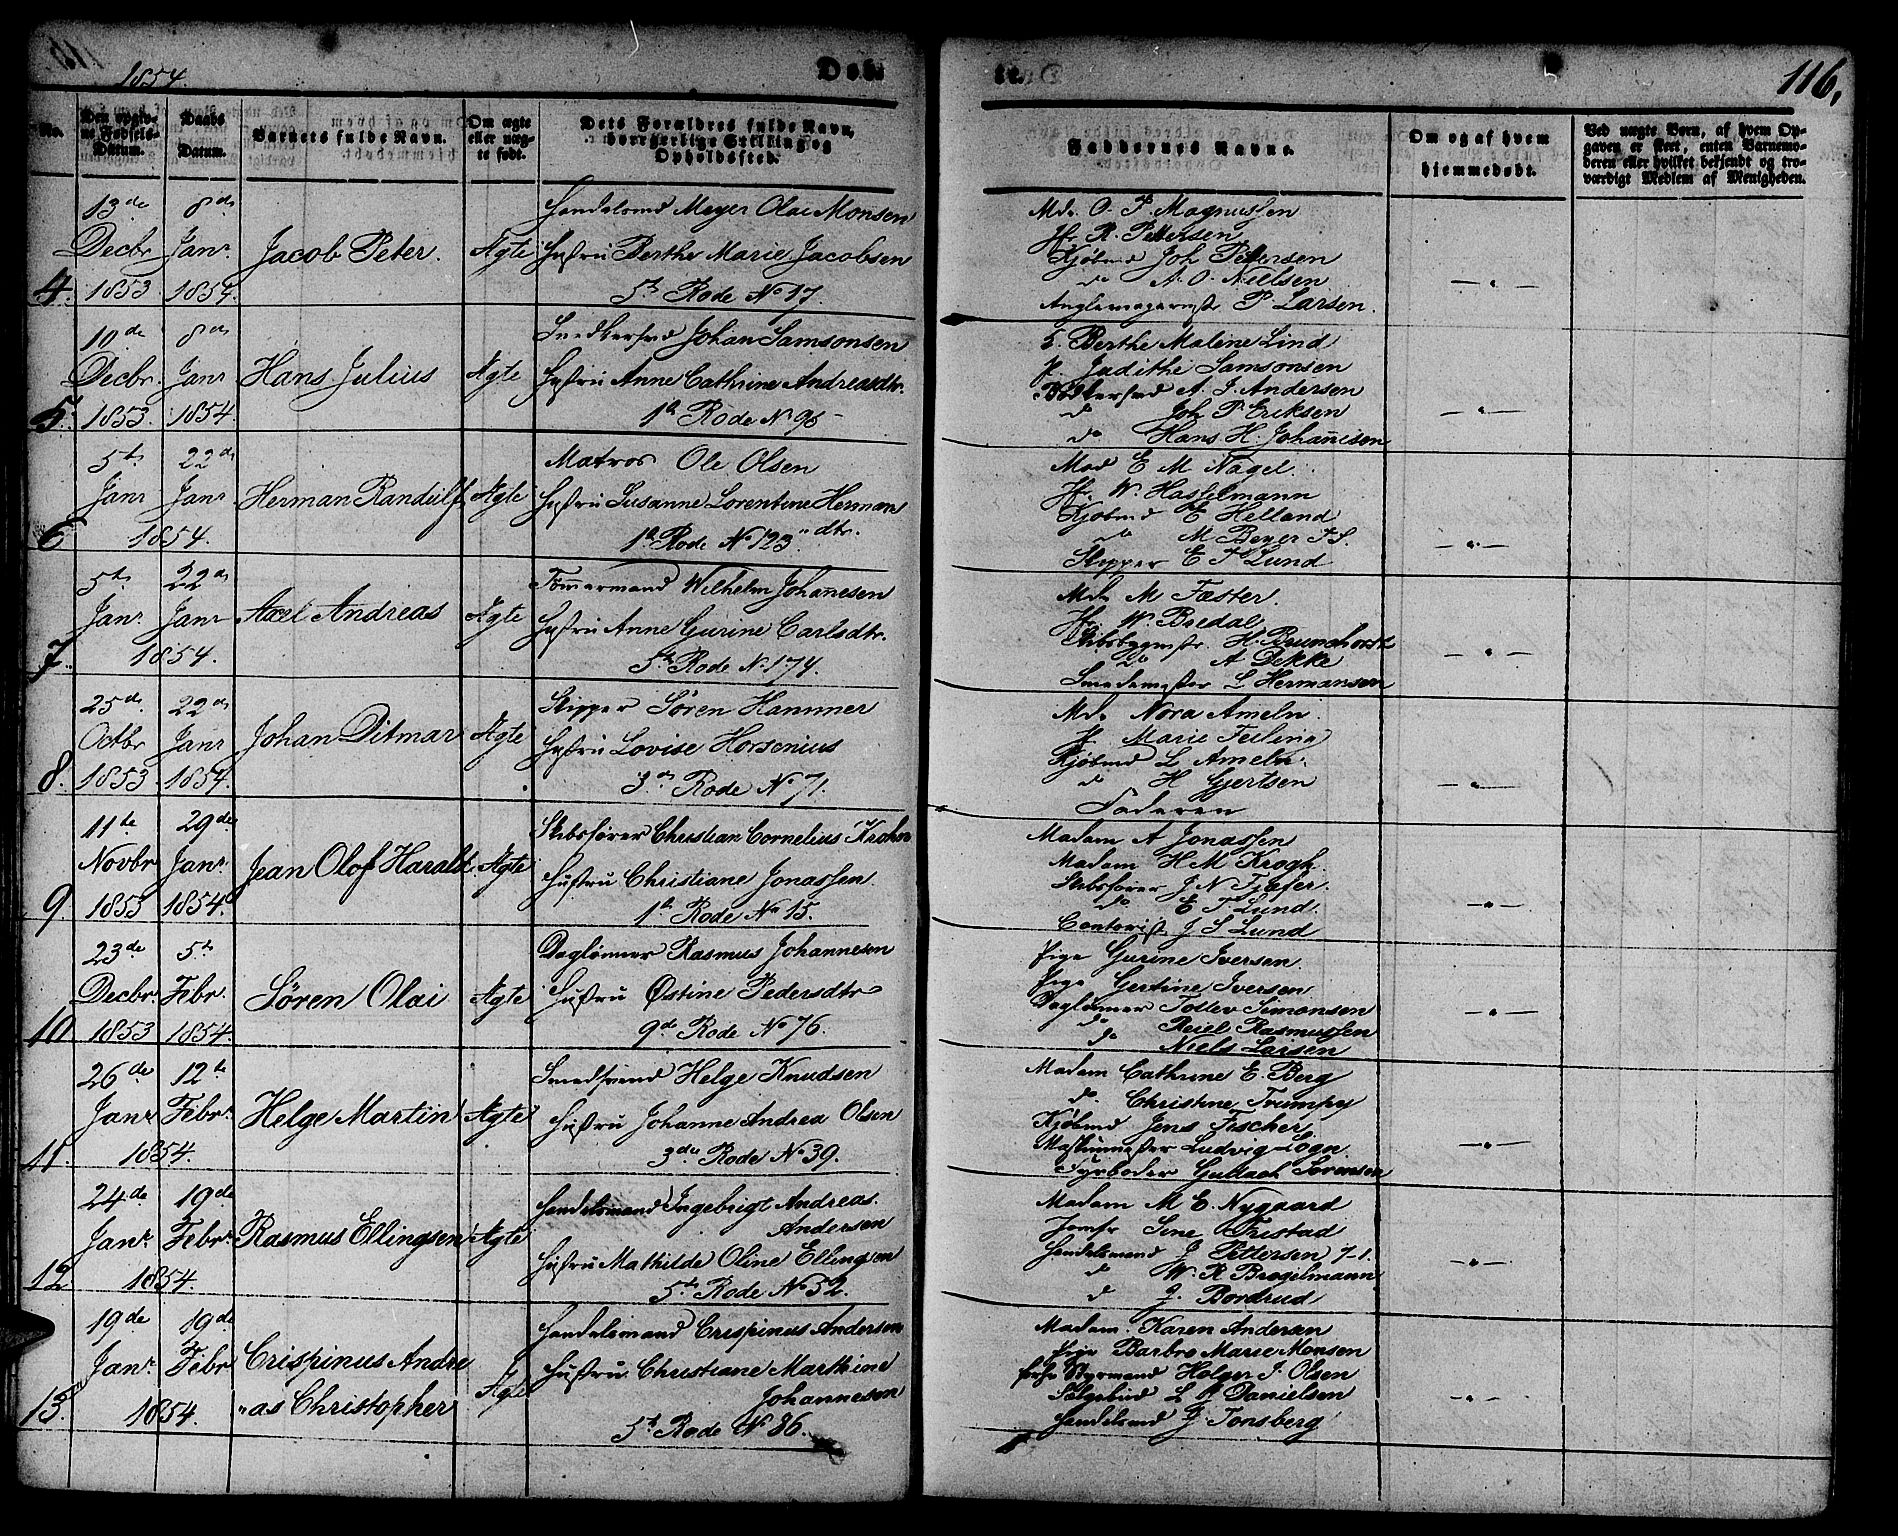 1854.
Døb-
te.
116.
No.
Den opgiv-
ne Fødsels-
Datum.
Daabs
Datum.
Barnets fulde Navn.
Om ægte
eller uæg-
te født.
Dets Forældres fulde Navn,
borgerlige Stilling og
Opholdssted.
Faddernes Navne.
Om og af hvem
hjemmedøbt.
Ved uægte Børn, af hvem Op-
gaven er skeet, enten Barnemo-
deren eller hvilket bekjendt og tro-
værdigt Medlem af Menigheden.
4.
13de Decbr 1853
8de Janr. 1854.
Jacob Peter.
Ægte
Handelsmd Meyer Olai Monsen
Hustru Berthe Marie Jacobsen
5te Rode No 17.
Md. O. P. Magnussen
Jfr. R. Pettersen
Kjøbmd Joh Pettersen
do A. O. Nielsen
P. Larsen.
— " —
5.
10de Decbr. 1853.
8de Janr 1854
Hans Julius
Ægte
Snedkersvd Johan Samsonsen
Hustru Anne Cathrine Andreasdtr.
1te Rode No 96
E. Berthe Malene Lind
P. Judithe Samsonsen
Bødkersvd A. J. Andersen
do Joh P. Eriksen
do Hans H. Johannesen
— " —
6
5te Janr
22de Janr
1854.
Herman Randulf
Ægte
Matros Ole Olsen
Hustru Susanne Lorentine Hermans
"dtr.
1te Rode No 123.
Mad E M Nagel.
Jfr. W. Hasselmann
Kjøbmd E Helland
do M Beyer J.S.
Skipper E T Lund
— " —
7.
5te Janr
22de Janr
1854.
Axel Andreas
Ægte
Tømmermand Wilhelm Johannesen
Hustru Anne Gurine Carlsdtr.
5te Rode No 174.
Md. M Fæster.
Jfr. W. Bredal
Skibsbygmstr. H. Brunchorst
do A Dekke
Smedemester L Hermansen
— " —
8.
25de Octbr 1853
22de Janr 1854.
Johan Ditmar
Ægte
Skipper Søren Hammer
Hustru Lovise Horsenius
3de Rode No 71.
Md. Nora Ameln.
P. Marie
Kjøbmd L Ameln.
do H Gjertsen
Faderen
— " —
9
11te Novbr 1853
29de Janr. 1854.
Jean Olof Harald
Ægte
Skibsfører Christian Cornelius Krohn
Hustru Christiane Jonassen.
1te Rode No 15.
Madam A Jonassen
Madam H M Krogh.
Skibsfører J N
do E T Lund.
Contorist J S Lund
— " —
10
23de Decbr 1853
5te Febr. 1854.
Søren Olai
Ægte
Daglønner Rasmus Johannesen
Hustru Østine Pedersdtr
9de Rode No 76.
Pige Gurine Iversen.
Pige Gertine Iversen
Daglønner Tollev Simonsen
do Reiel Rasmussen
do Niels Larsen
— " —
11
26de Janr
12te Febr.
1854.
Helge Martin
Ægte
Smedsvend Helge Knudsen
Hustru Johanne Andrea Olsen
3die Rode No 39.
Madam Cathrine E. Berg
do. Christine Trumpy
Kjøbmd Jens Fischer
Maskinmester Ludvig
Fyrbøder Gullach Sørensen
— " —
12
24de Janr.
19de Febr.
1854.
Rasmus Ellingsen
Ægte
Handelsmand Ingebrigt Andreas
Andersen
Hustru Mathilde Oline Ellingsen
5te Rode No 52.
Madam M E. Nygaard
Jomfr Sine Fristad
Handelsmand J Pettersen
do W. R Brøgelmann
d J. Bordrud
— " —
13.
19de Janr.
19de Febr
1854.
Crispinus Andre
"as Christopher
Ægte
Handelsmand Crispinus Andersen
Hustru Christiane Marthine
Johannesen
5te Rode No 86.
Madam Karen Andersen
Pige Barbro Marie Monsen
Styrmand Holger J. Olsen
L Danielsen
Handelsmd J Tonsberg
— " —